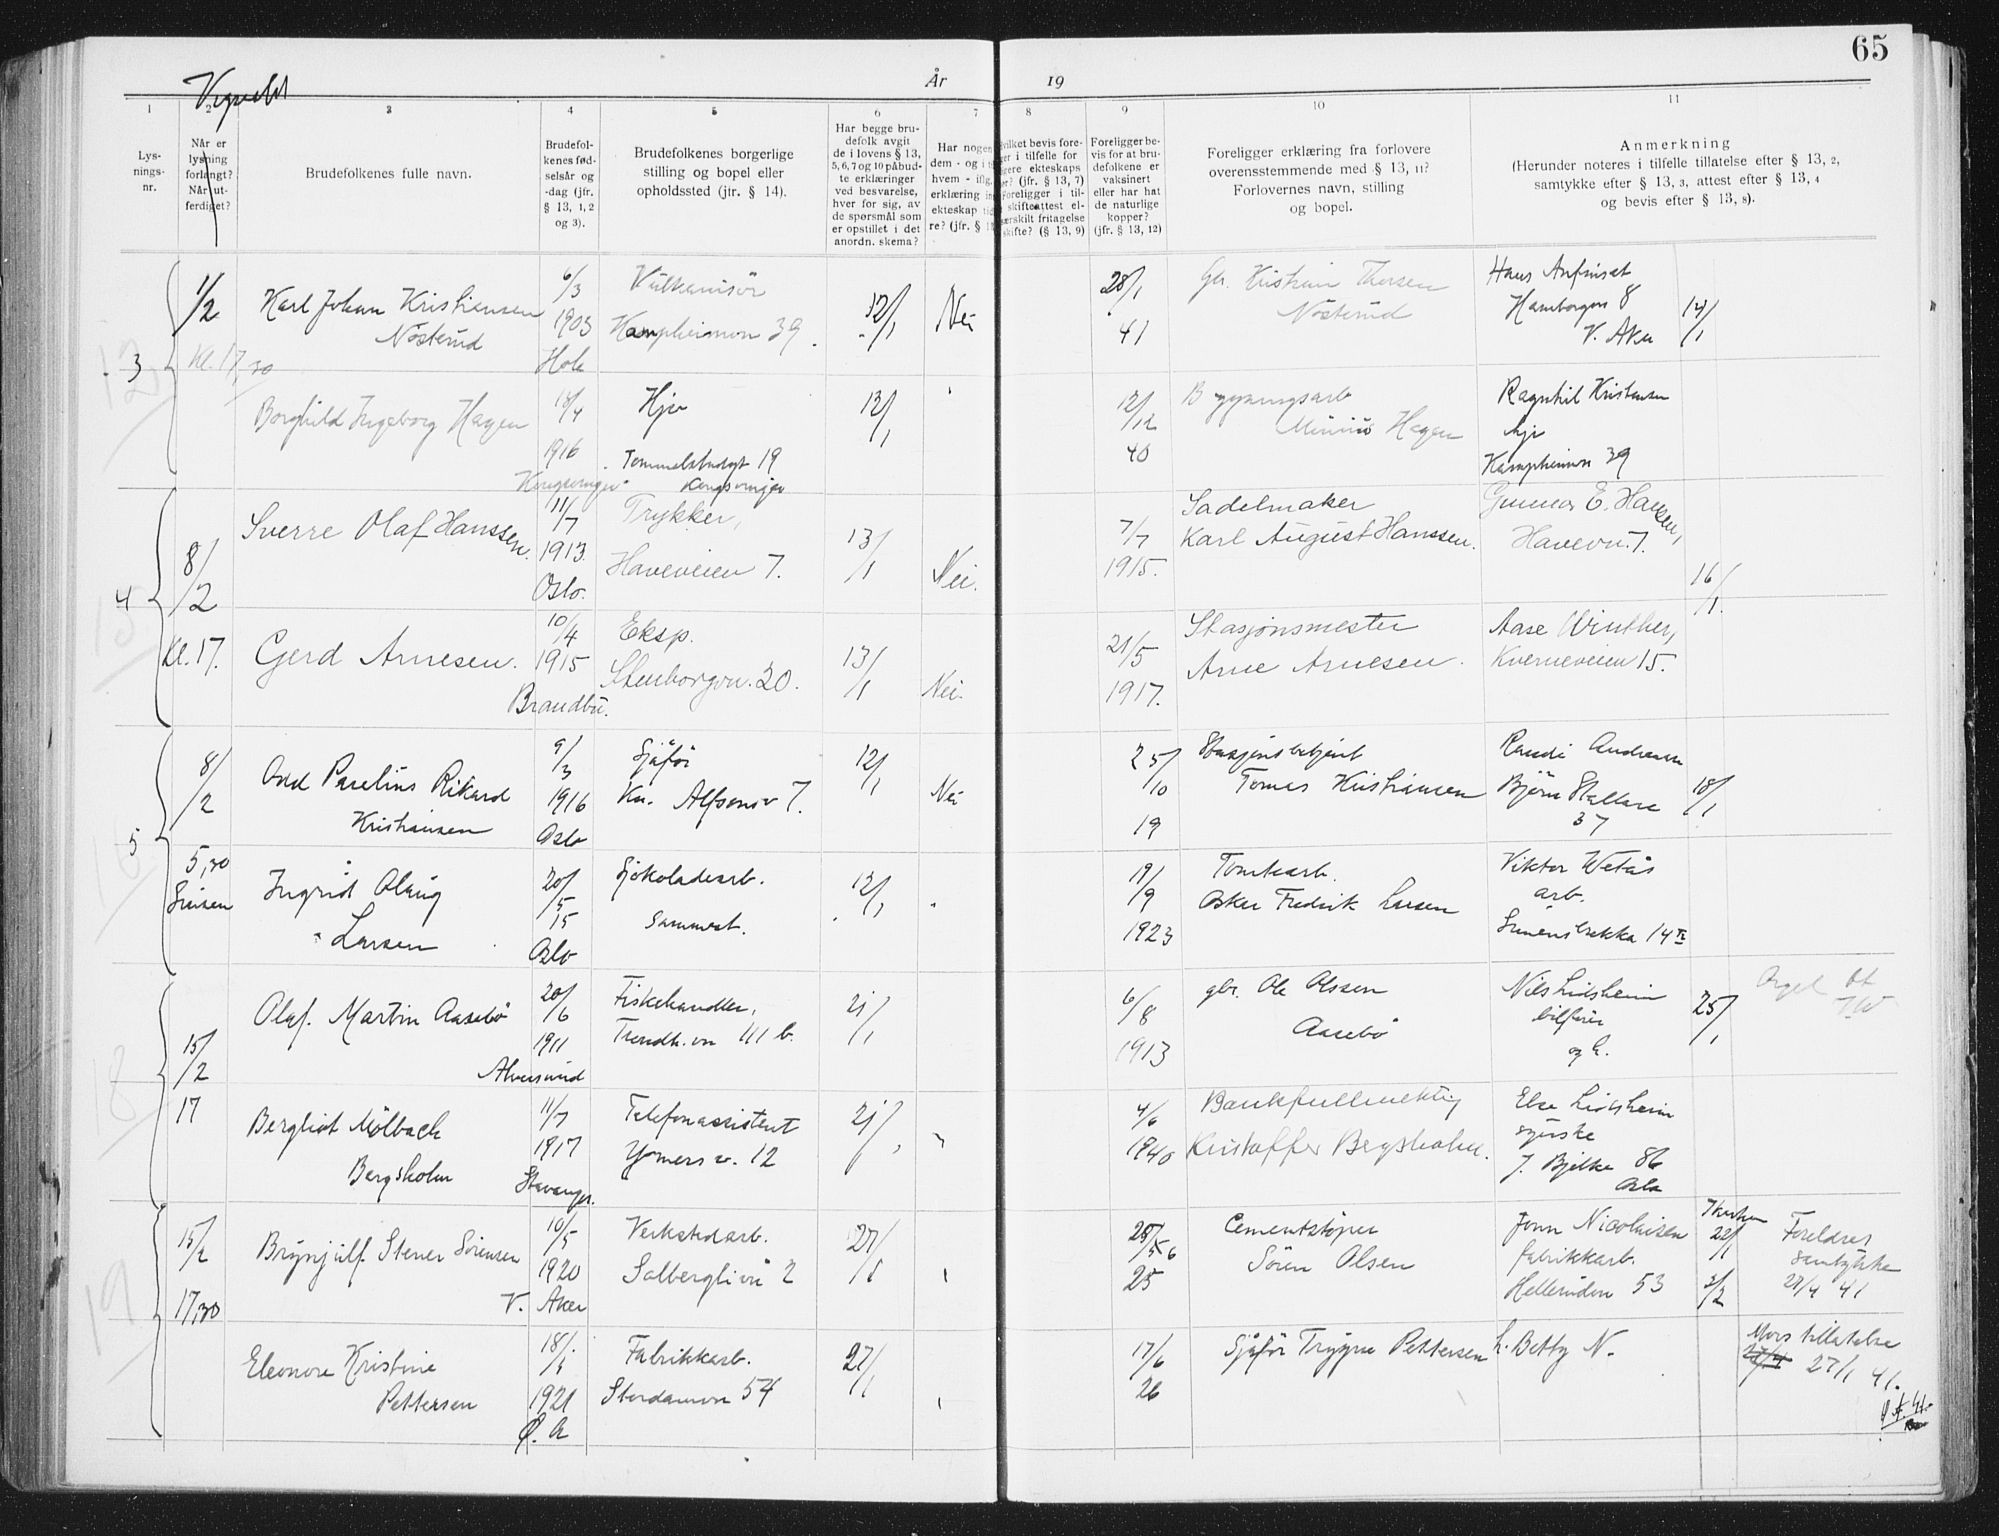 65
År 19
Vigselsl
1 2 3 4 5 6 7 8 9 10 11
Lys-
nings-
nr.
Når er
lysning
forlangt?
Når ut-
ferdiget?
Brudefolkenes fulle navn.
Brudefol-
kenes fød-
selsår og
-dag (jfr.
§ 13, 1, 2
og 3).
Brudefolkenes borgerlige
stilling og bopel eller
opholdssted (jfr. § 14).
Har begge bru-
defolk avgit
de i lovens § 13,
5, 6, 7 og 10 påbud-
te erklæringer
ved besvarelse,
hver for sig, av
de spørsmål som
er opstillet i det
anordn. skema?
Har nogen
dem - og i
hvem - iflg.
erklæring in
ekteskap tid
re? (jfr. § 1
vilket bevis fore-
er i tilfelle for
gere ekteskaps
r? (jfr. § 13, 7)
Foreligger i til-
skifteattest el-
særskilt fritagelse
skifte? (§ 13, 9)
Foreligger be-
vis for at bru-
defolkene er
vaksinert
eller har hat
de naturlige
kopper?
(jfr. § 13, 12)
Foreligger erklæring fra forlovere
overensstemmende med § 13, 11?
Forlovernes navn, stilling
og bopel.
Anmerkning
(Herunder noteres i tilfelle tillatelse efter § 13, 2,
samtykke efter § 13, 3, attest efter § 13, 4
og bevis efter § 13, 8).
3
1/2
Kl. 17,30
Karl Johan Kristiansen
Nøsterud
6/3
1903
Hole
Vulkanisør
Kampheimvn 39.
12/1
Nei
28/1
41
Gbr. Kristian Thorsen
Nøsterud
Hans
Hamborgvn 8
V. Aker
Borghild Ingeborg Hagen
1916
Kongsvinger
Hjv
19
Kongsvinger
13/1
12/12
40
Bygningsarb
Hagen
Ragnhil Kristensen
hjv
Kampheimvn 39
4
8/2
Kl. 17.
Sverre Olaf Hanssen.
11/7
1913.
Oslo.
Trykker,
Haveveien 7.
13/1
Nei.
7/7
1915.
Sadelmaker
Karl August Hanssen.
Gunnar E. Hansen,
Havevn. 7.
16/1.
Gerd Arnesen.
10/4
1915
Brandbu.
Eksp.
Stenborgvn. 20.
13/1
Nei.
21/5
1917.
Stasjonsmester
Arne Arnesen.
Aase Winther,
Kverneveien 15.
5
8/2
5,30
Sinsen
Odd Paulius Rikard
Kristiansen
9/3
1916
Oslo
Sjåfør
Kn. Alfsonsv 7.
12/1
Nei
25/10
19
Stasjonsbetjent
Tomas Kristiansen
Randi Andresen
Bjørn Stallare
37
18/1
Ingrid Olaug
Larsen
20/5
15
Oslo
Sjokoladearb.
sammest.
12/1
19/9
1923
Tomtearb.
Oskar Fredrik Larsen
Viktor Wetås
arb.
Simensbrekka 14 IV
15/2
17
Olaf. Martin Aasebø
20/6
1911
Alversund
Fiskehandler,
Trondh.vn 111 b.
21/1
6/8
1913
gbr. Ole Olssen
Aasebø
Nils Lidsheim
bilfører
og h.
25/1
Orgel
Bergliot Mølbach
Bergsholm
11/7
1917
Stavanger.
Telefonassistent
Ymersv. 12
21/1
4/6
1940
Bankfullmektig
Kristoffer Bergsholm.
Else Lidsheim
syerske
J. Bjelke 86
Oslo
15/2
17,30
Brynjulf Stener Sørensen
10/5
1920
V. Aker
Verkstedarb.
Solbergliv 2
27/1
25
Cementstøper
Søren Olsen
Jonn Nicolaisen
fabrikkarb.
Hellerudvn 53
22/1
3/2
Foreldres
samtykke
41
Eleonore Kristine
Pettersen
18/1
1921
Ø. A
Fabrikkarb.
Stordamvn 54
27/1
17/6
26
Sjåfør Trygve Pettersen
h. Betty N.
Mors tillatelse
27/1 41.